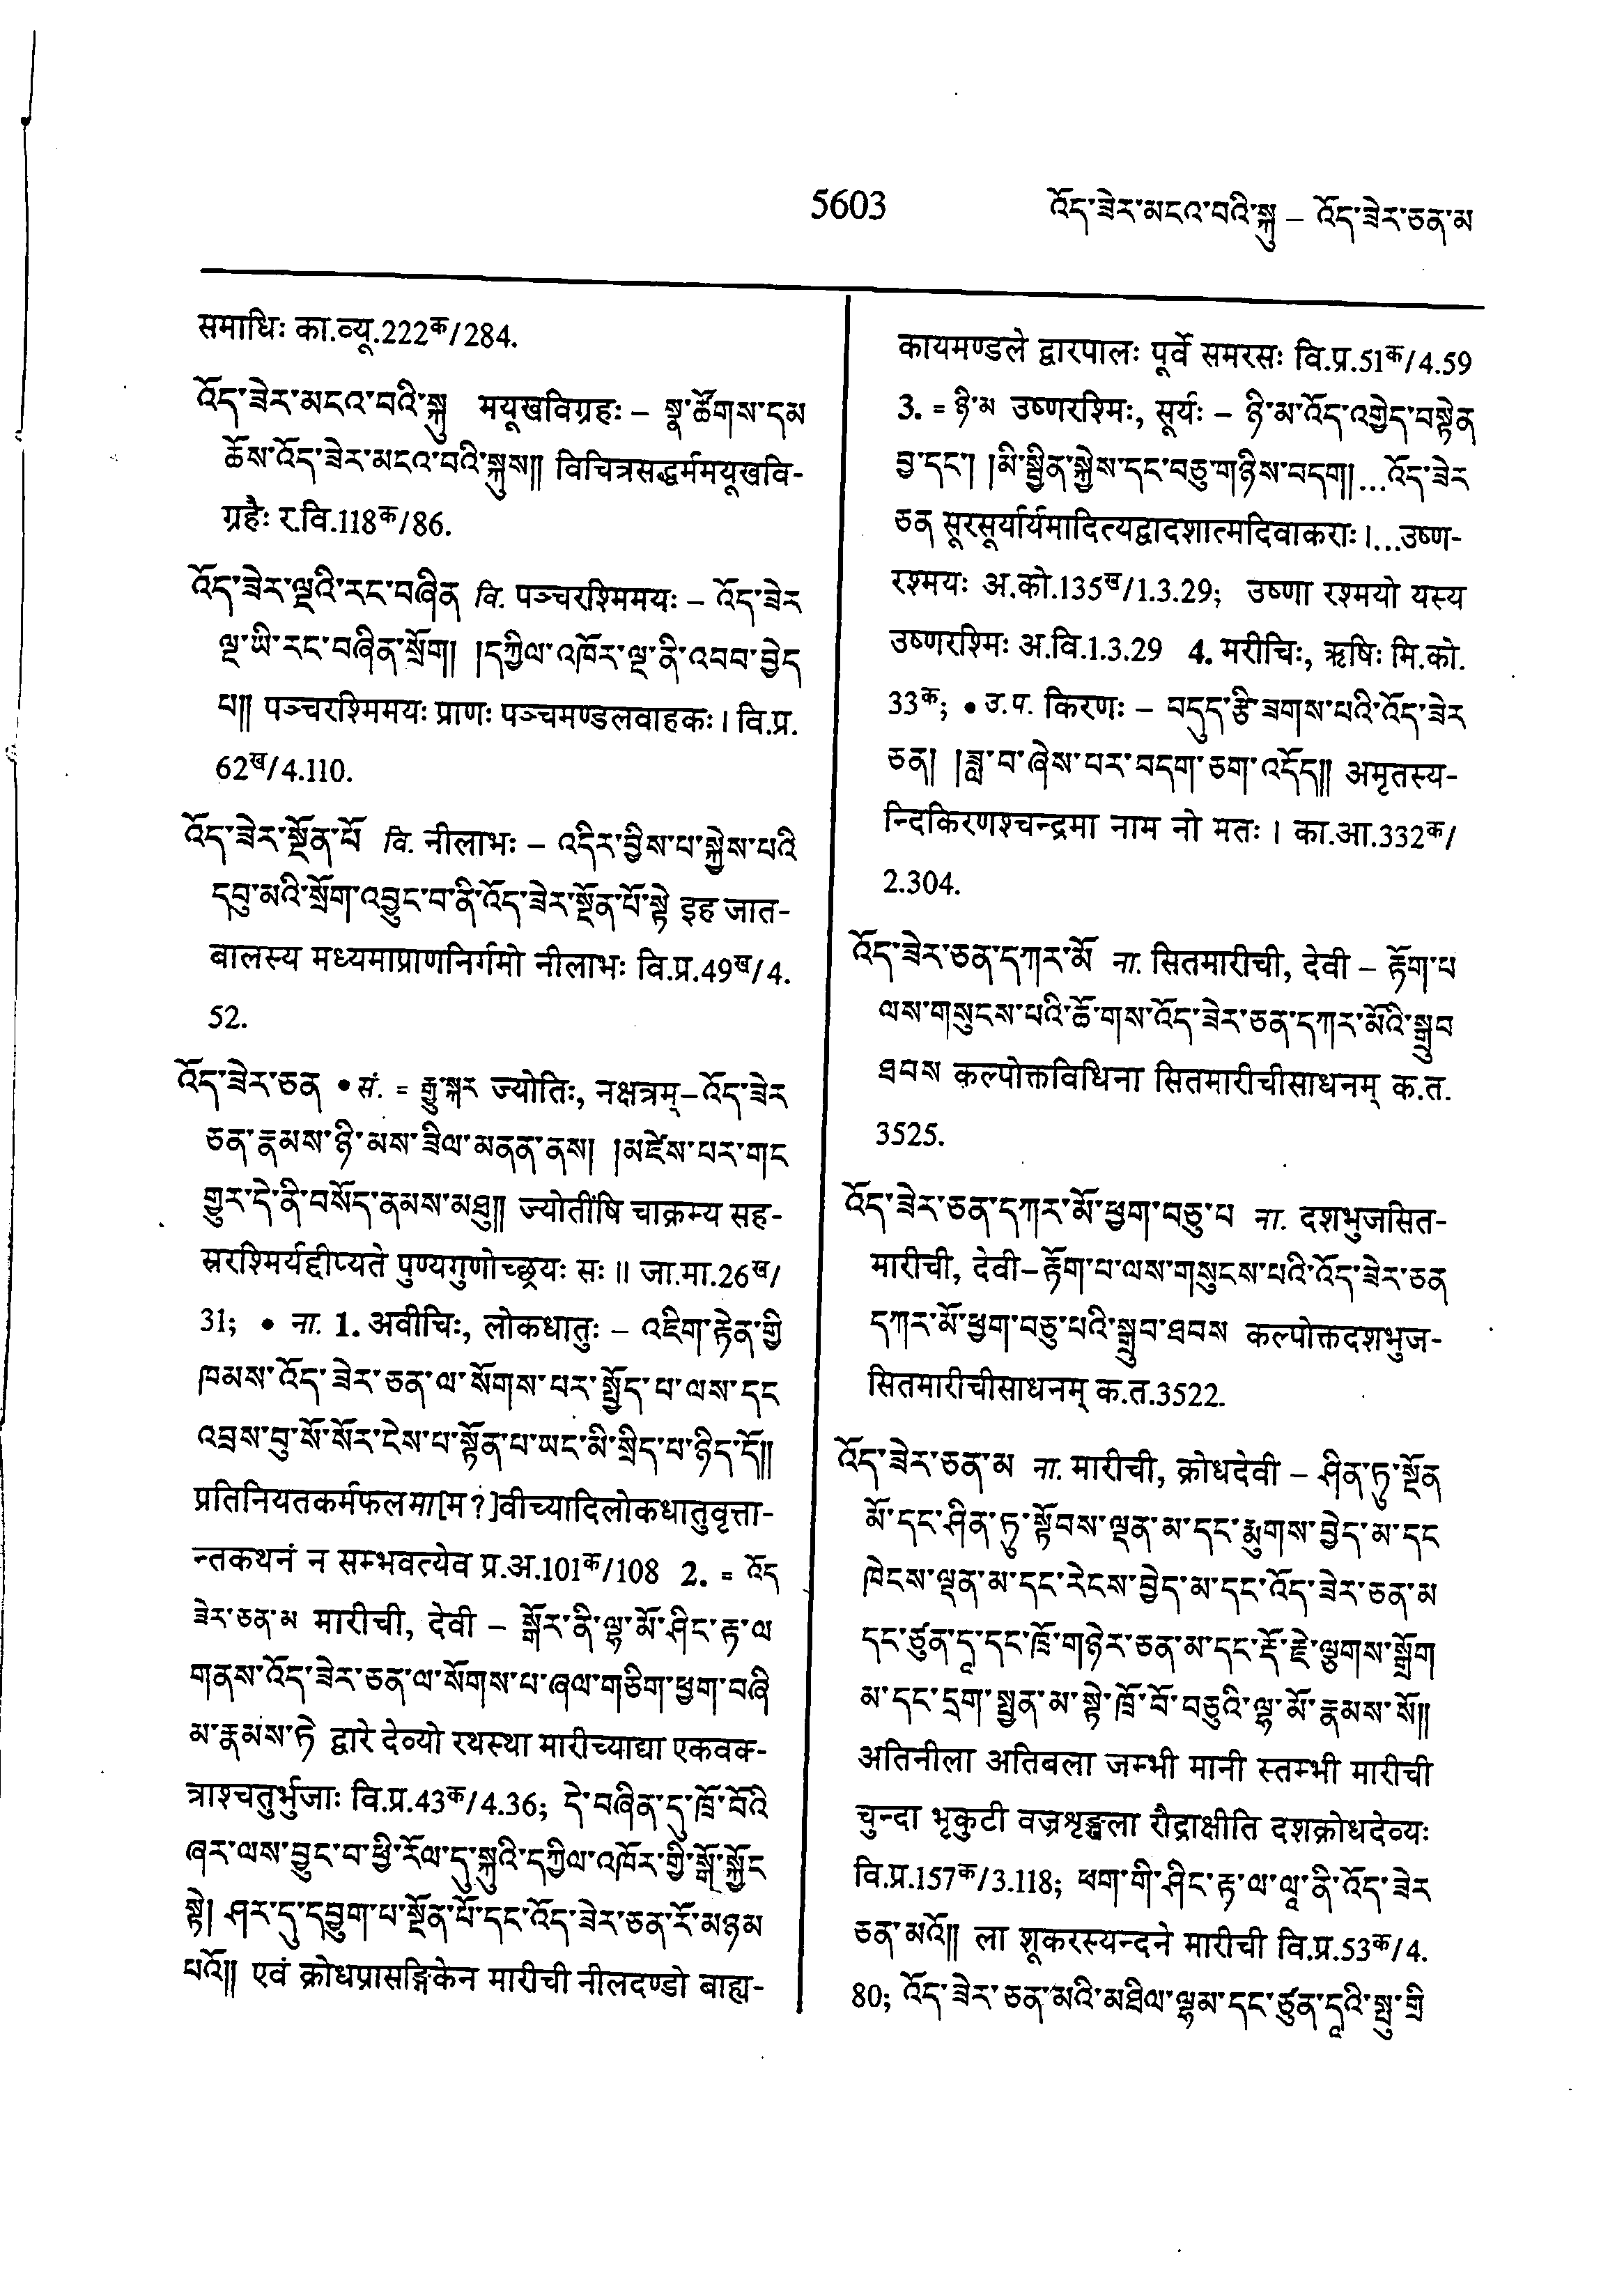 5603
འོད་ཟེར་མངའ་བའི་སྐུ – འོད་ཟེར་ཅན་མ
समाधिः का.व्यू.222क/284.
འོད་ཟེར་མངའ་བའི་སྐུ मयूखविग्रहः – སྣ་ཚོགས་དམ
ཆོས་འོད་ཟེར་མངའ་བའི་སྐུས།། विचित्रसद्धर्ममयूखवि-
ग्रहैः र.वि.118क/86.
འོད་ཟེར་ལྔའི་རང་བཞིན वि. पञ्चरश्मिमयः – འོད་ཟེར
ལྔ་ཡི་རང་བཞིན་སྲོག། །དཀྱིལ་འཁོར་ལྔ་ནི་འབབ་བྱེད
པ།། पञ्चरश्मिमयः प्राणः पञ्चमण्डलवाहकः । वि.प्र.
62ख/4.110.
འོད་ཟེར་སྔོན་པོ वि. नीलाभः – འདིར་བྱིས་པ་སྐྱེས་པའི
དབུ་མའི་སྲོག་འབྱུང་བ་ནི་འོད་ཟེར་སྔོན་པོ་སྟེ इह जात-
बालस्य मध्यमाप्राणनिर्गमो नीलाभः वि.प्र.49ख/4.
52.
འོད་ཟེར་ཅན • सं. = རྒྱུ་སྐར ज्योतिः, नक्षत्रम् – འོད་ཟེར
ཅན་རྣམས་ཉི་མས་ཟིལ་མནན་ནས། །མཛེས་པར་གང
གྱུར་དེ་ནི་བསོད་ནམས་མཐུ།། ज्योतींषि चाक्रम्य सह-
स्ररश्मिर्यद्दीप्यते पुण्यगुणोच्छ्रयः सः ॥ जा.मा.26ख/
31; • ना. 1. अवीचिः, लोकधातुः – འཇིག་རྟེན་གྱི
ཁམས་འོད་ཟེར་ཅན་ལ་སོགས་པར་སྤྱོད་པ་ལས་དང
འབྲས་བུ་སོ་སོར་ངེས་པ་སྟོན་པ་ཡང་མི་སྲིད་པ་ཉིད་དོ།།
प्रतिनियतकर्मफलमा[म?]वीच्यादिलोकधातुवृत्ता-
न्तकथनं न सम्भवत्येव प्र.अ.101क/108 2. = འོད
ཟེར་ཅན་མ मारीची, देवी – སྒོར་ནི་ལྷ་མོ་ཤིང་རྟ་ལ
གནས་འོད་ཟེར་ཅན་ལ་སོགས་པ་ཞལ་གཅིག་ཕྱག་བཞི
མ་རྣམས་ཏེ द्वारे देव्यो रथस्था मारीच्याद्या एकवक-
त्राश्चतुर्भुजाः वि.प्र.43क/4.36; དེ་བཞིན་དུ་ཁྲོ་བོའི
ཞར་ལས་བྱུང་བ་ཕྱི་རོལ་དུ་སྐུའི་དཀྱིལ་འཁོར་གྱི་སྒོ་སྐྱོང
སྟེ། ཤར་དུ་དབྱུག་པ་སྔོན་པོ་དང་འོད་ཟེར་ཅན་རོ་མཉམ
པའོ།། एवं क्रोधप्रासङ्गिकेन मारीची नीलदण्डो बाह्य-
कायमण्डले द्वारपालः पूर्वे समरसः वि.प्र.51क/4.59
3. = ཉི་མ उष्णरश्मिः, सूर्यः – ཉི་མ་འོད་འགྱེད་བསྟེན
བྱ་དང་། །མི་སྦྱིན་སྐྱེས་དང་བཅུ་གཉིས་བདག།...འོད་ཟེར
ཅན सूरसूर्यार्यमादित्यद्वादशात्मदिवाकराः ।...उष्ण-
रश्मयः अ.को.135ख/1.3.29; उष्णा रश्मयो यस्य
उष्णरश्मिः अ.वि.1.3.29 4. मरीचिः, ऋषिः मि.को.
33क; • उ.प. किरणः – བདུད་རྩི་ཟགས་པའི་འོད་ཟེར
ཅན། །ཟླ་བ་ཞེས་པར་བདག་ཅག་འདོད།། अमृतस्य-
न्दिकिरणश्चन्द्रमा नाम नो मतः । का.आ.332क/
2.304.
འོད་ཟེར་ཅན་དཀར་མོ ना. सितमारीची, देवी – རྟོག་པ
ལས་གསུངས་པའི་ཆོ་གས་འོད་ཟེར་ཅན་དཀར་མོའི་སྒྲུབ
ཐབས कल्पोक्तविधिना सितमारीचीसाधनम् क.त.
3525.
འོད་ཟེར་ཅན་དཀར་མོ་ཕྱག་བཅུ་པ ना. दशभुजसित-
मारीची, देवी – རྟོག་པ་ལས་གསུངས་པའི་འོད་ཟེར་ཅན
དཀར་མོ་ཕྱག་བཅུ་པའི་སྒྲུབ་ཐབས कल्पोक्तदशभुज-
सितमारीचीसाधनम् क.त.3522.
འོད་ཟེར་ཅན་མ ना. मारीची, क्रोधदेवी – ཤིན་ཏུ་སྔོན
མོ་དང་ཤིན་ཏུ་སྟོབས་ལྡན་མ་དང་རྨུགས་བྱེད་མ་དང
ཁེངས་ལྡན་མ་དང་རེངས་བྱེད་མ་དང་འོད་ཟེར་ཅན་མ
དང་ཙུན་དཱ་དང་ཁྲོ་གཉེར་ཅན་མ་དང་རྡོ་རྗེ་ལྕགས་སྒྲོག
མ་དང་དྲག་སྤྱན་མ་སྟེ་ཁྲོ་བོ་བཅུའི་ལྷ་མོ་རྣམས་སོ།།
अतिनीला अतिबला जम्भी मानी स्तम्भी मारीची
चुन्दा भृकुटी वज्रशृङ्खला रौद्राक्षीति दशक्रोधदेव्यः
वि.प्र.157क/3.118; ཕག་གི་ཤིང་རྟ་ལ་ལཱ་ནི་འོད་ཟེར
ཅན་མའོ།། ला शूकरस्यन्दने मारीची वि.प्र.53क/4.
80; འོད་ཟེར་ཅན་མའི་མཐིལ་ལྷམ་དང་ཙུན་དཱའི་སྤུ་གྲི